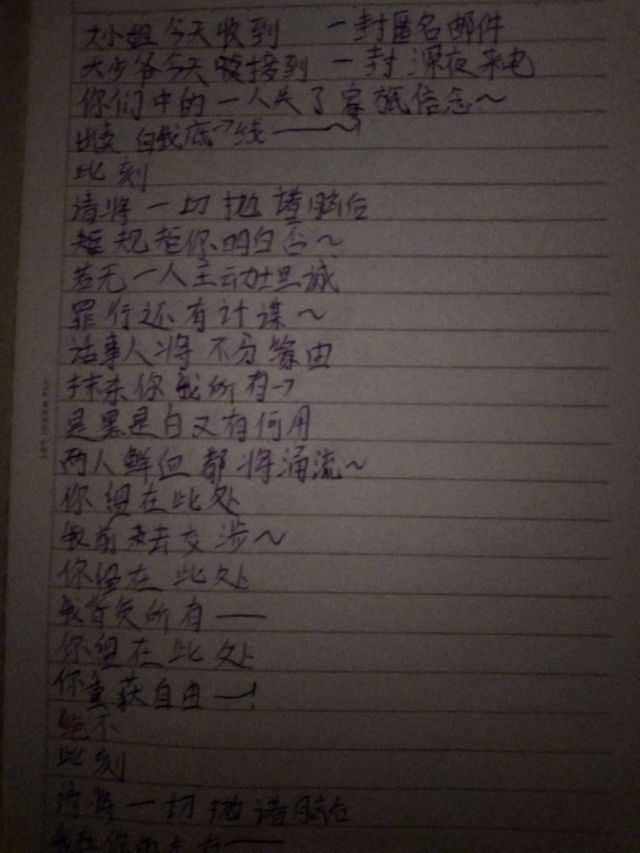 大小姐今天收到 一封匿名邮件
大少爷今天 接到 一封 深夜来电
你们中的一人失了家族信念～
出卖 自我底线——～
此刻
请将一切抛诸脑后
规矩你明白否～
若无一人主动坦诚
罪行还有计谋～
话事人将不分缘由
抹杀你我所有→
是黑是白又有何用
两人鲜血都将涌流～
你留在此处
我前去交涉～
你留在此处
我背负所有——
你留在此处
你重获自由—！
绝不
此刻
请将一切抛诸脑后